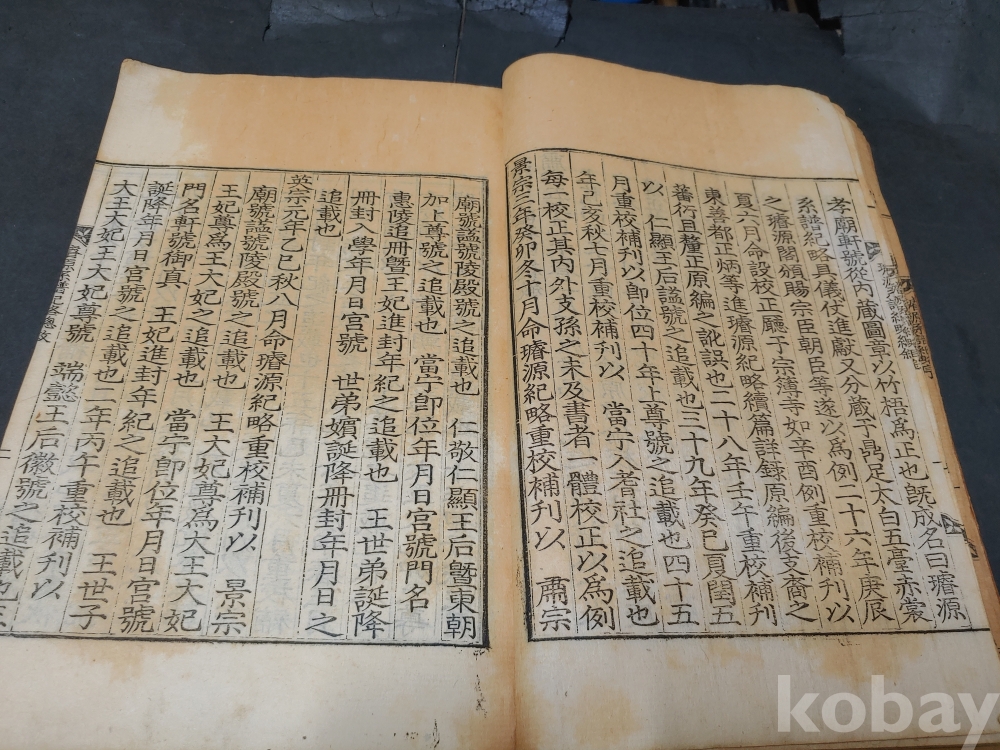 孝廟軒號從內藏圖章以竹梧爲正也旣成名曰璿源
系譜紀略具儀仗進獻又分藏于鼎足太白五臺赤裳
之璿源閣頒賜宗臣朝臣等遂以爲例二十六年庚辰
夏六月命設校正廳于宗簿寺如辛酉例重校補刊以
東善都正炳等進璿源紀略續篇詳録原編後支裔之
蕃衍且釐正原編之訛誤也二十八年壬午重校補刊
以 仁顯王后謚號之追載也三十九年癸巳夏閏五
月重校補刊以卽位四十年上尊號之追載也四十五
年己亥秋七月重校補刊以 當宁入耆社之追載也
每一校正其內外支孫之未及書者一體校正以爲例
景宗三年癸卯冬十月命璿源紀略重校補刊以 肅宗
廟號謚號陵殿號之追載也 仁敬仁顯王后曁東朝
加上尊號之追載也 當宁卽位年月日宮號門名
惠陵追冊曁王妃進封年紀之追載也 王世弟誕降
冊封入學年月日宮號 世弟嬪誕降冊封年月日之
追載也
英宗元年乙巳秋八月命璿源紀略重校補刊以 景宗
廟號謚號陵殿號之追載也 王大妃尊爲大王大妃
王妃尊爲王大妃之追載也 當宁卽位年月日宮號
門名軒號御眞 王妃進封年紀之追載也 王世子
誕降年月日宮號之追載也二年丙午重校補刊以
大王大妃王大妃尊號 端懿王后徽號之追載也